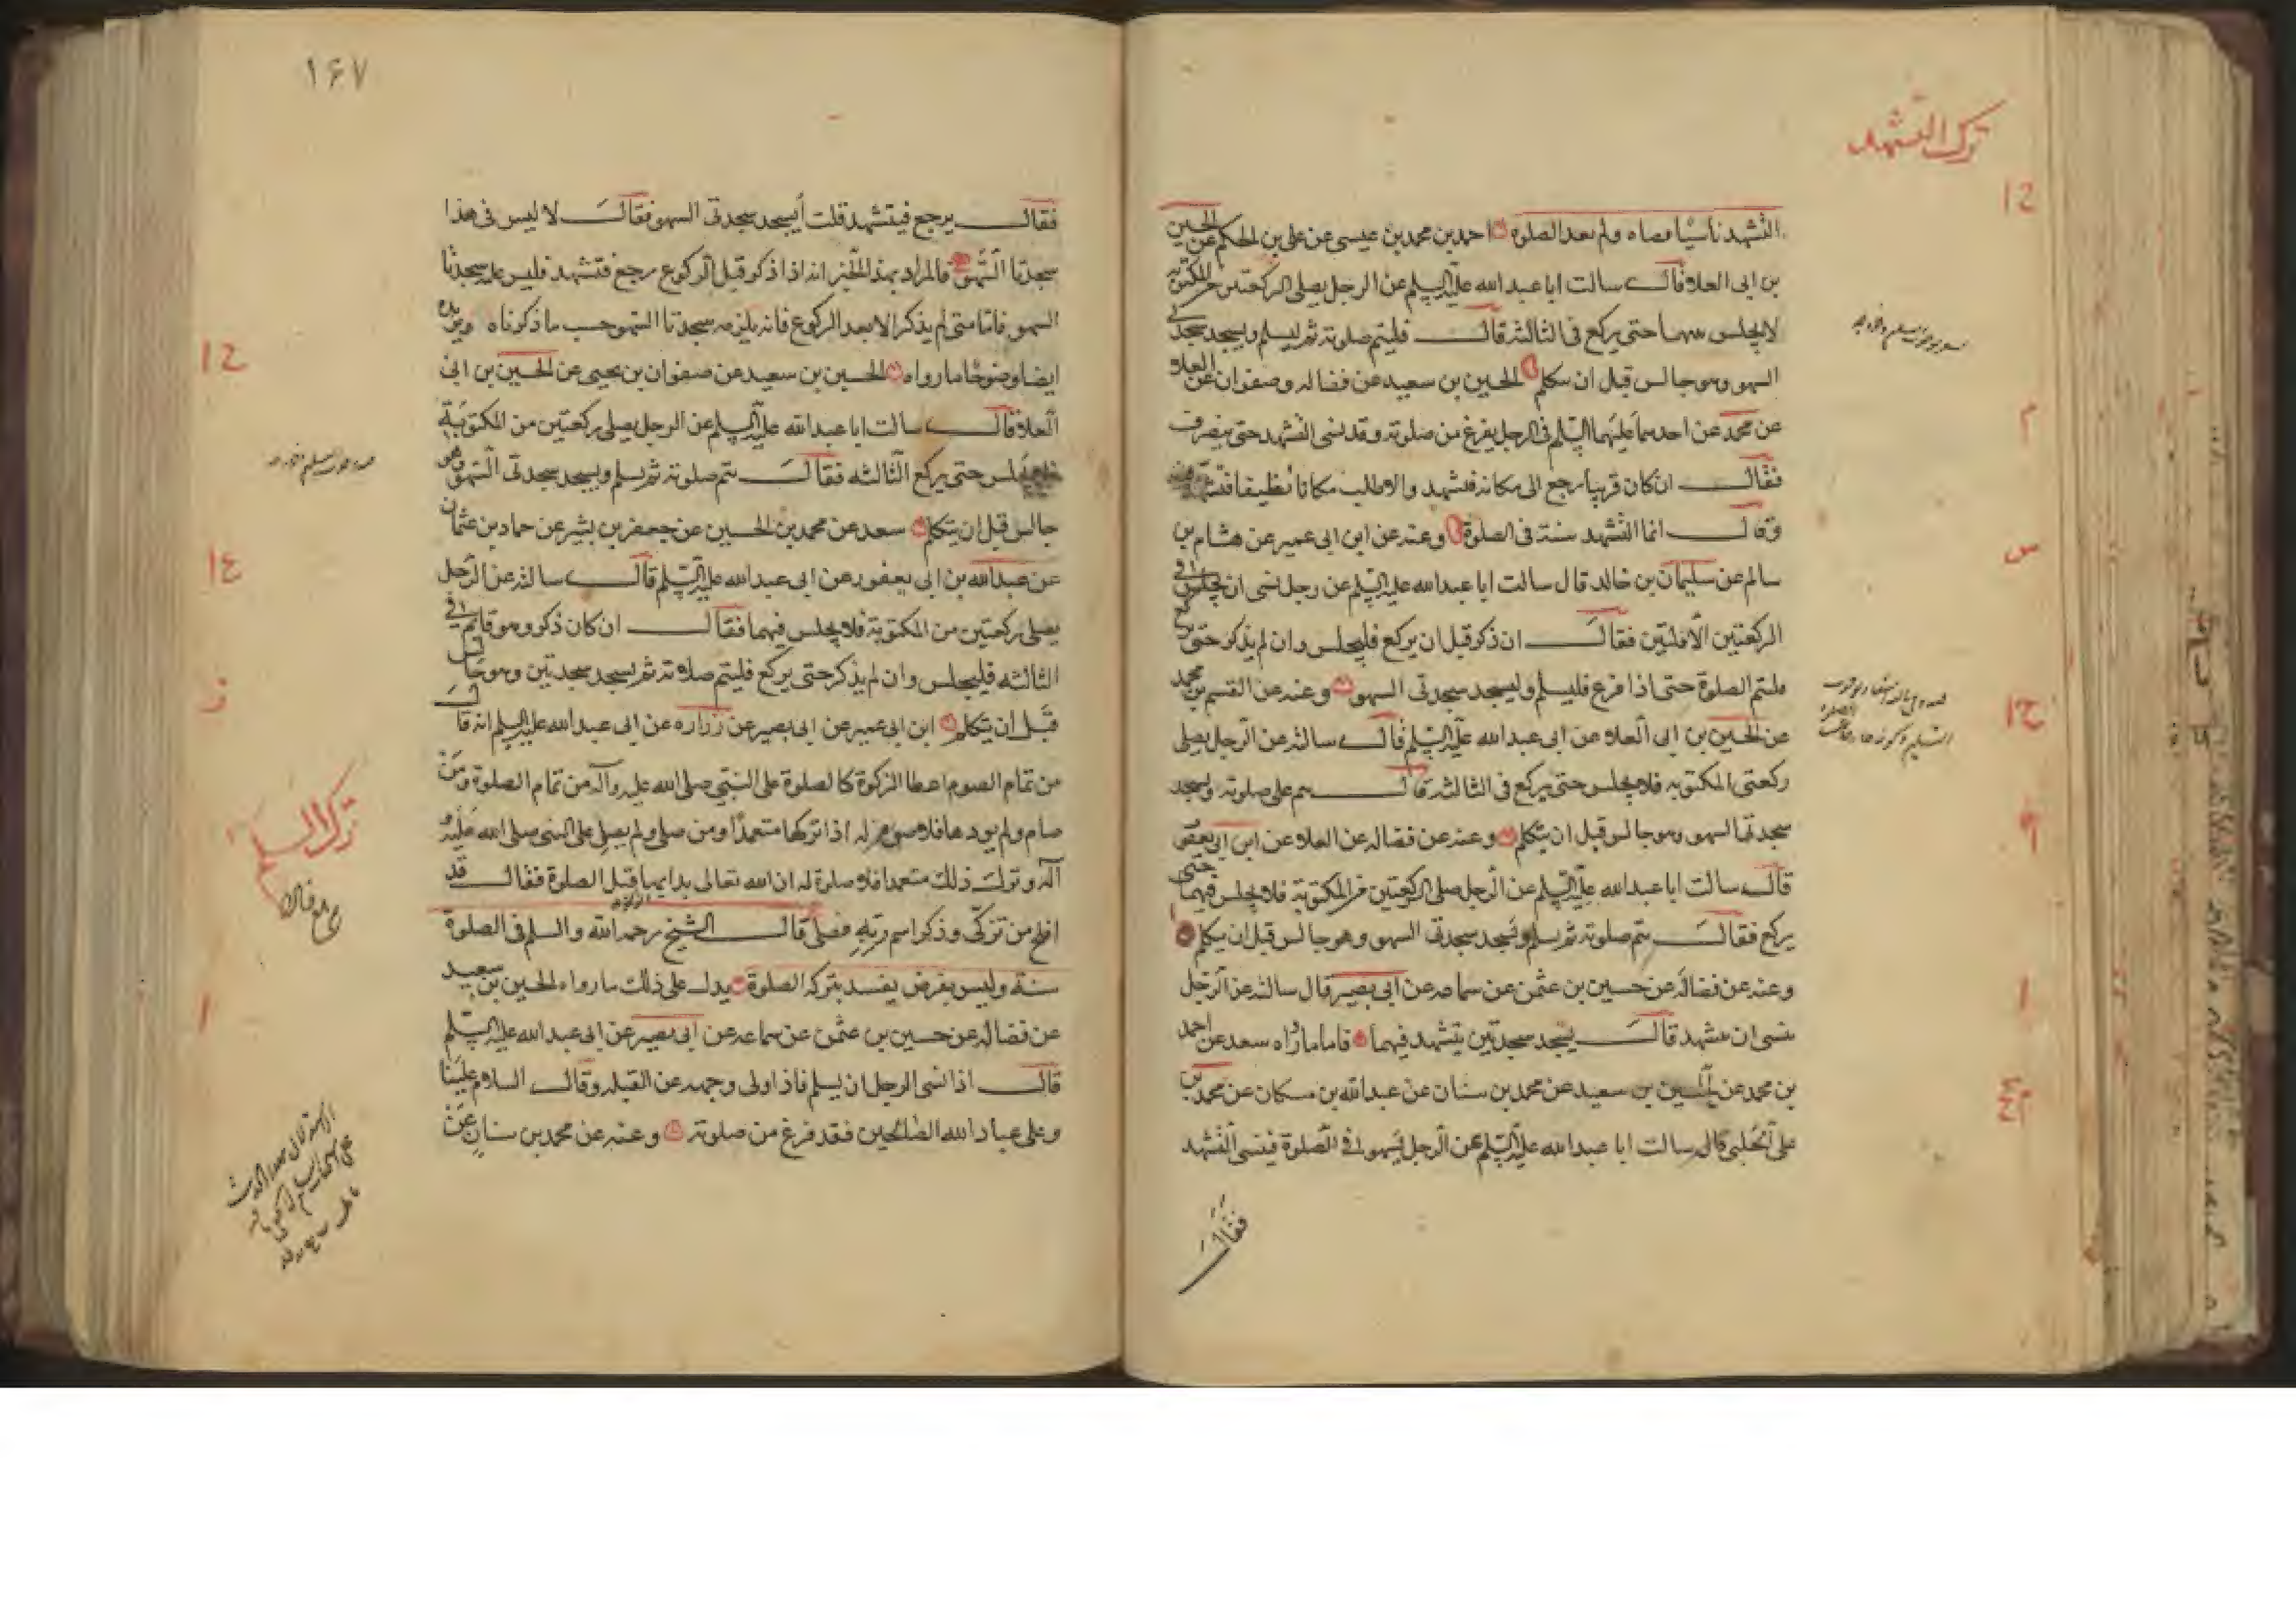 ترك التشهد
التشهد ناسيا قضاه ولم يعد الصلوة احمد بن محمد بن عيسى عن على بن الحكم عن الحسين
بن ابى العلا قال سالت ابا عبد الله عليه السلم عن الرجل يصلى الركعتين من المكتوبه
لا يجلس بينهما حتى يركع فى الثالثه قال فليتم صلوته ثم ليسلم ويسجد سجدتى
السهو وهو جالس قبل ان يتكلم الحسين بن سعيد عن فضاله وصفوان عن العلا
عن محمد عن احدهما عليهما السلم فى الرجل يفرغ من صلوته وقد نسى التشهد حتى ينصرف
فقال ان كان قريبا رجع الى مكانه فتشهد والا طلب مكانا نظيفا فتشهد فيه
وقال انما التشهد سنة فى الصلوة وعنه عن ابن ابى عمير عن هشام بن
سالم عن سليمان بن خالد قال سالت ابا عبد الله عليه السلم عن رجل نسى ان يجلس فى
الركعتين الاولتين فقال ان ذكر قبل ان يركع فليجلس وان لم يذكر حتى يركع
فليتم الصلوة حتى اذا فرغ فليسلم وليسجد سجدتى السهو وعنه عن القسم بن محمد
عن الحسين بن ابى العلا عن ابى عبد الله عليه السلم قال سالته عن الرجل يصلى
ركعتى المكتوبه فلا يجلس حتى يركع فى الثالثه قال يتم على صلوته ويسجد
سجدتى السهو وهو جالس قبل ان يتكلم وعنه عن فضاله عن العلا عن ابن ابى يعفور
قال سالت ابا عبد الله عليه السلم عن الرجل صلى الركعتين من المكتوبة فلا يجلس فيهما حتى
يركع فقال يتم صلوته ثم يسلم ويسجد سجدتى السهو وهو جالس قبل ان يتكلم
وعنه عن فضاله عن حسين بن عثمن عن سماعه عن ابى بصير قال سالته عن الرجل
ينسى ان يتشهد قال يسجد سجدتين يتشهد فيهما فاما ما رواه سعد عن احمد
بن محمد عن الحسين بن سعيد عن محمد بن سنان عن عبد الله بن مسكان عن محمد بن
على الحلبى قال سالت ابا عبد الله عليه السلم عن الرجل يسهو فى الصلوة فينسى التشهد
فقال
١۶٧
فقال يرجع فيتشهد قلت أيسجد سجدتى السهو فقال لا ليس فى هذا
سجدتا السهو فالمراد بهذا الخبر انه اذا ذكر قبل الركوع رجع فتشهد فليس عليه سجدتا
السهو فاما متى لم يذكر الا بعد الركوع فانه يلزمه سجدتا السهو حسب ما ذكرناه ويزيده
ايضا وضوحا ما رواه الحسين بن سعيد عن صفوان بن يحيى عن الحسين بن ابى
العلا قال سالت ابا عبد الله عليه السلم عن الرجل يصلى ركعتين من المكتوبة
فلا يجلس حتى يركع الثالثه فقال يتم صلوته ثم يسلم ويسجد سجدتى السهو وهو
جالس قبل ان يتكلم سعد عن محمد بن الحسين عن جعفر بن بشير عن حماد بن عثمان
عن عبد الله بن ابى يعفور عن ابى عبد الله عليه السلم قال سالته عن الرجل
يصلى ركعتين من المكتوبة فلا يجلس فيهما فقال ان كان ذكر وهو قائم فى
الثالثه فليجلس وان لم يذكر حتى يركع فليتم صلاته ثم يسجد سجدتين وهو جالس
قبل ان يتكلم ابن ابى عمير عن ابى بصير عن زراره عن ابى عبد الله عليه السلم انه قال
من تمام الصوم اعطا الزكوة كالصلوة على النبى صلى الله عليه وآله من تمام الصلوة ومن
صام ولم يودها فلا صوم له اذا تركها متعمدا ومن صلى ولم يصل على النبى صلى الله عليه و
آله وترك ذلك متعمدا فلا صلوة له ان الله تعالى بدا بها قبل الصلوة فقال قد
افلح من تزكى وذكر اسم ربه فصلى قال الشيخ رحمه الله والسلم فى الصلوة
سنة وليس بفرض يفسد بتركه الصلوة يدل على ذلك ما رواه الحسين بن سعيد
عن فضاله عن حسين بن عثمن عن سماعه عن ابى بصير عن ابى عبد الله عليه السلم
قال اذا نسى الرجل ان يسلم فاذا ولى وجهه عن القبله وقال السلام علينا
وعلى عباد الله الصالحين فقد فرغ من صلوته وعنه عن محمد بن سنان عن